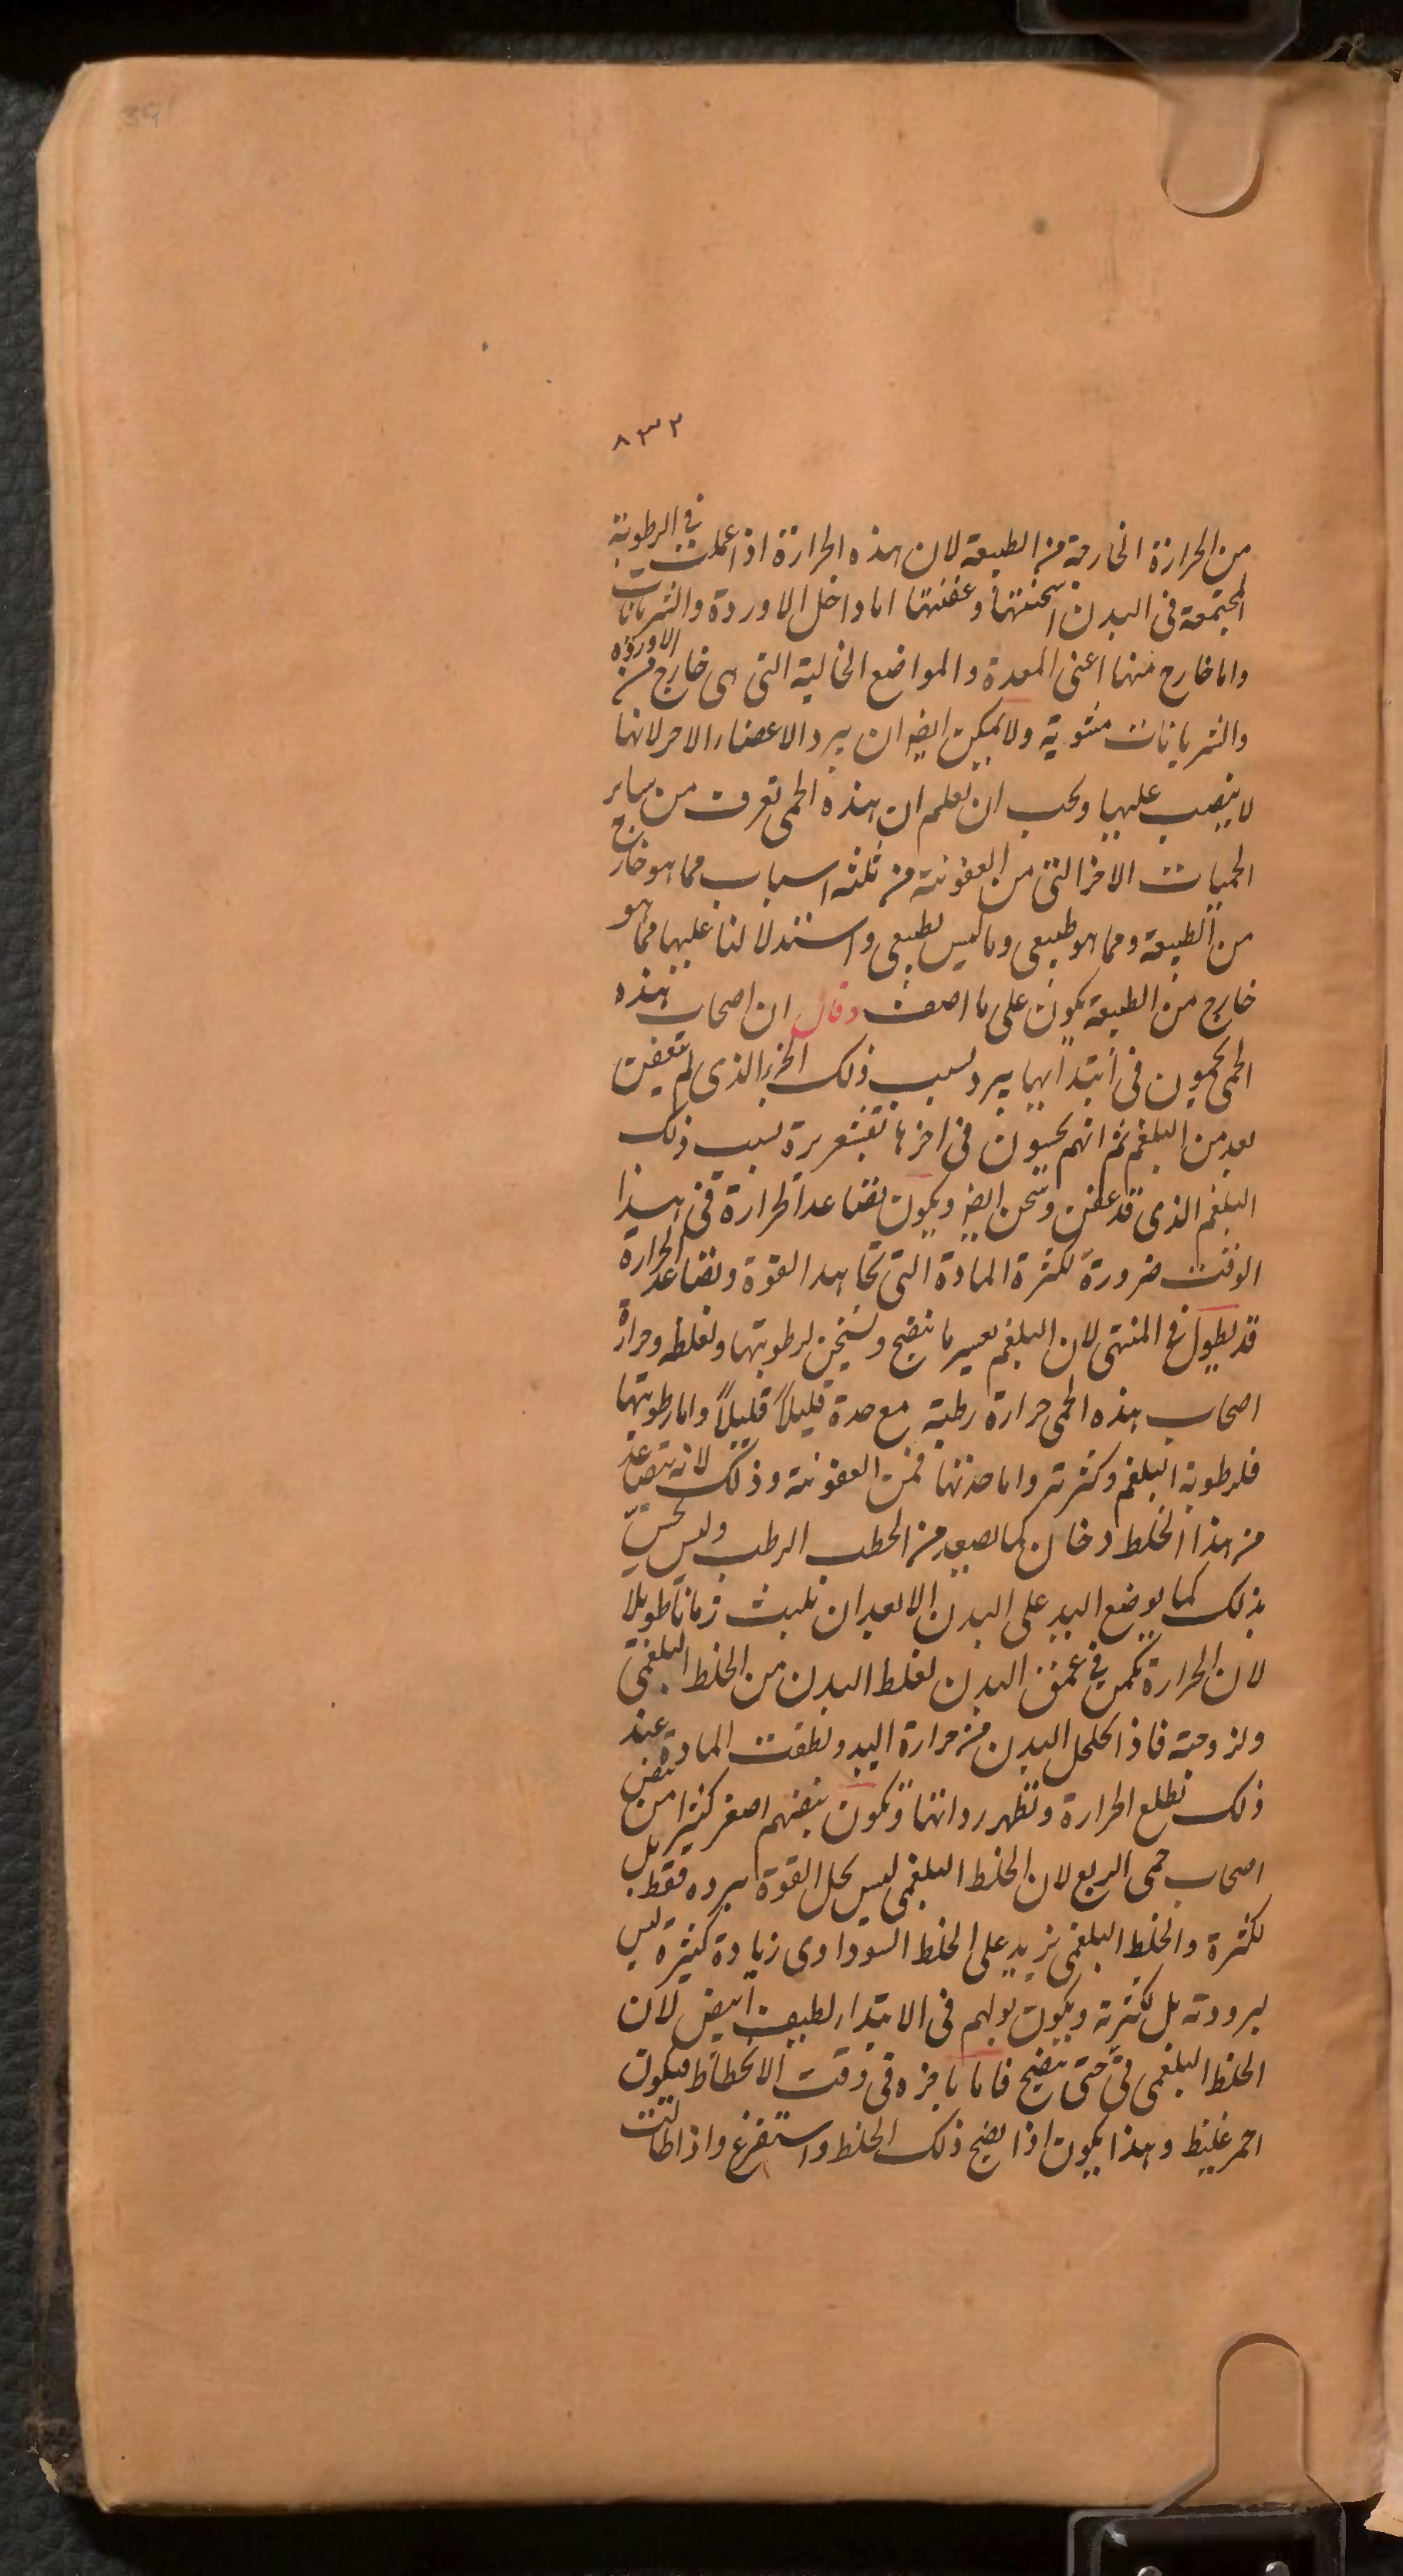 ٨٣٢
من الحرارة الخارجة من الطبيعة لان هذه الحرارة اذا عملت في الرطوبة
المجتمعة في البدن اسخنتها وعفنتها اما داخل الاوردة والشريانات
واما خارج منها اعنى المعدة والمواضع الخالية التى هى خارج من الاوردة
والشريانات مثوية ولا يمكن ايضا ان يبرد الاعضاء الاخر لانها
لا ينصب عليها ويجب ان تعلم ان هذه الحمى تعرف من ساير
الحميات الاخر التى من العفونة من ثلثه اسباب مما هو خارج
من الطبيعة ومما هو طبيعى وما ليس بطبيعى واستدلالنا عليها مما هو
خارج من الطبيعة يكون على ما اصف وقال ان اصحاب هذه
الحمى يحمون في ابتدائها ببرد بسبب ذلك الجزء الذى لم يعفن
بعد من البلغم ثم انهم يحسون في اخرها بقشعريرة بسبب ذلك
البلغم الذى قد عفن وسخن ايضا ويكون تصاعد الحرارة في هذا
الوقت ضرورة لكثرة المادة التى تجاهد القوة وتصاعد الحرارة
قد يطول في المنتهى لان البلغم عسير ما ينضج ويسخن لرطوبتها ولغلظه وحرارة
اصحاب هذه الحمى حرارة رطبة مع حدة قليلاً قليلاً واما رطوبتها
فلرطوبة البلغم وكثرته واما حدتها فمن العفونة وذلك لانه يتصاعد
من هذا الخلط دخان كما يصعد من الحطب الرطب وليس يحسّ
بذلك كما يوضع اليد على البدن الا بعد ان تلبث زمانا طويلا
لان الحرارة تكمن في عمق البدن لغلظ البدن من الخلط البلغمى
ولزوجته فاذا تحلحل البدن من حرارة اليد ولطفت المادة عند
ذلك تطلع الحرارة وتظهر رداتها ويكون نبضهم اصغر كثيرا من نبض
اصحاب حمى الربع لان الخلط البلغمى ليس يحل القوة ببرده فقط بل
لكثرة والخلط البلغمى يزيد على الخلط السوداوى زيادة كثيرة ليس
لبرودته بل لكثرته ويكون بولهم في الابتداء لطيف ابيض لان
الخلط البلغمى نىّ حتى ينضج فاما باخره في وقت الانحطاط فيكون
احمر غليظ وهذا يكون اذا نضج ذلك الخلط واستفرغ واذا طالت